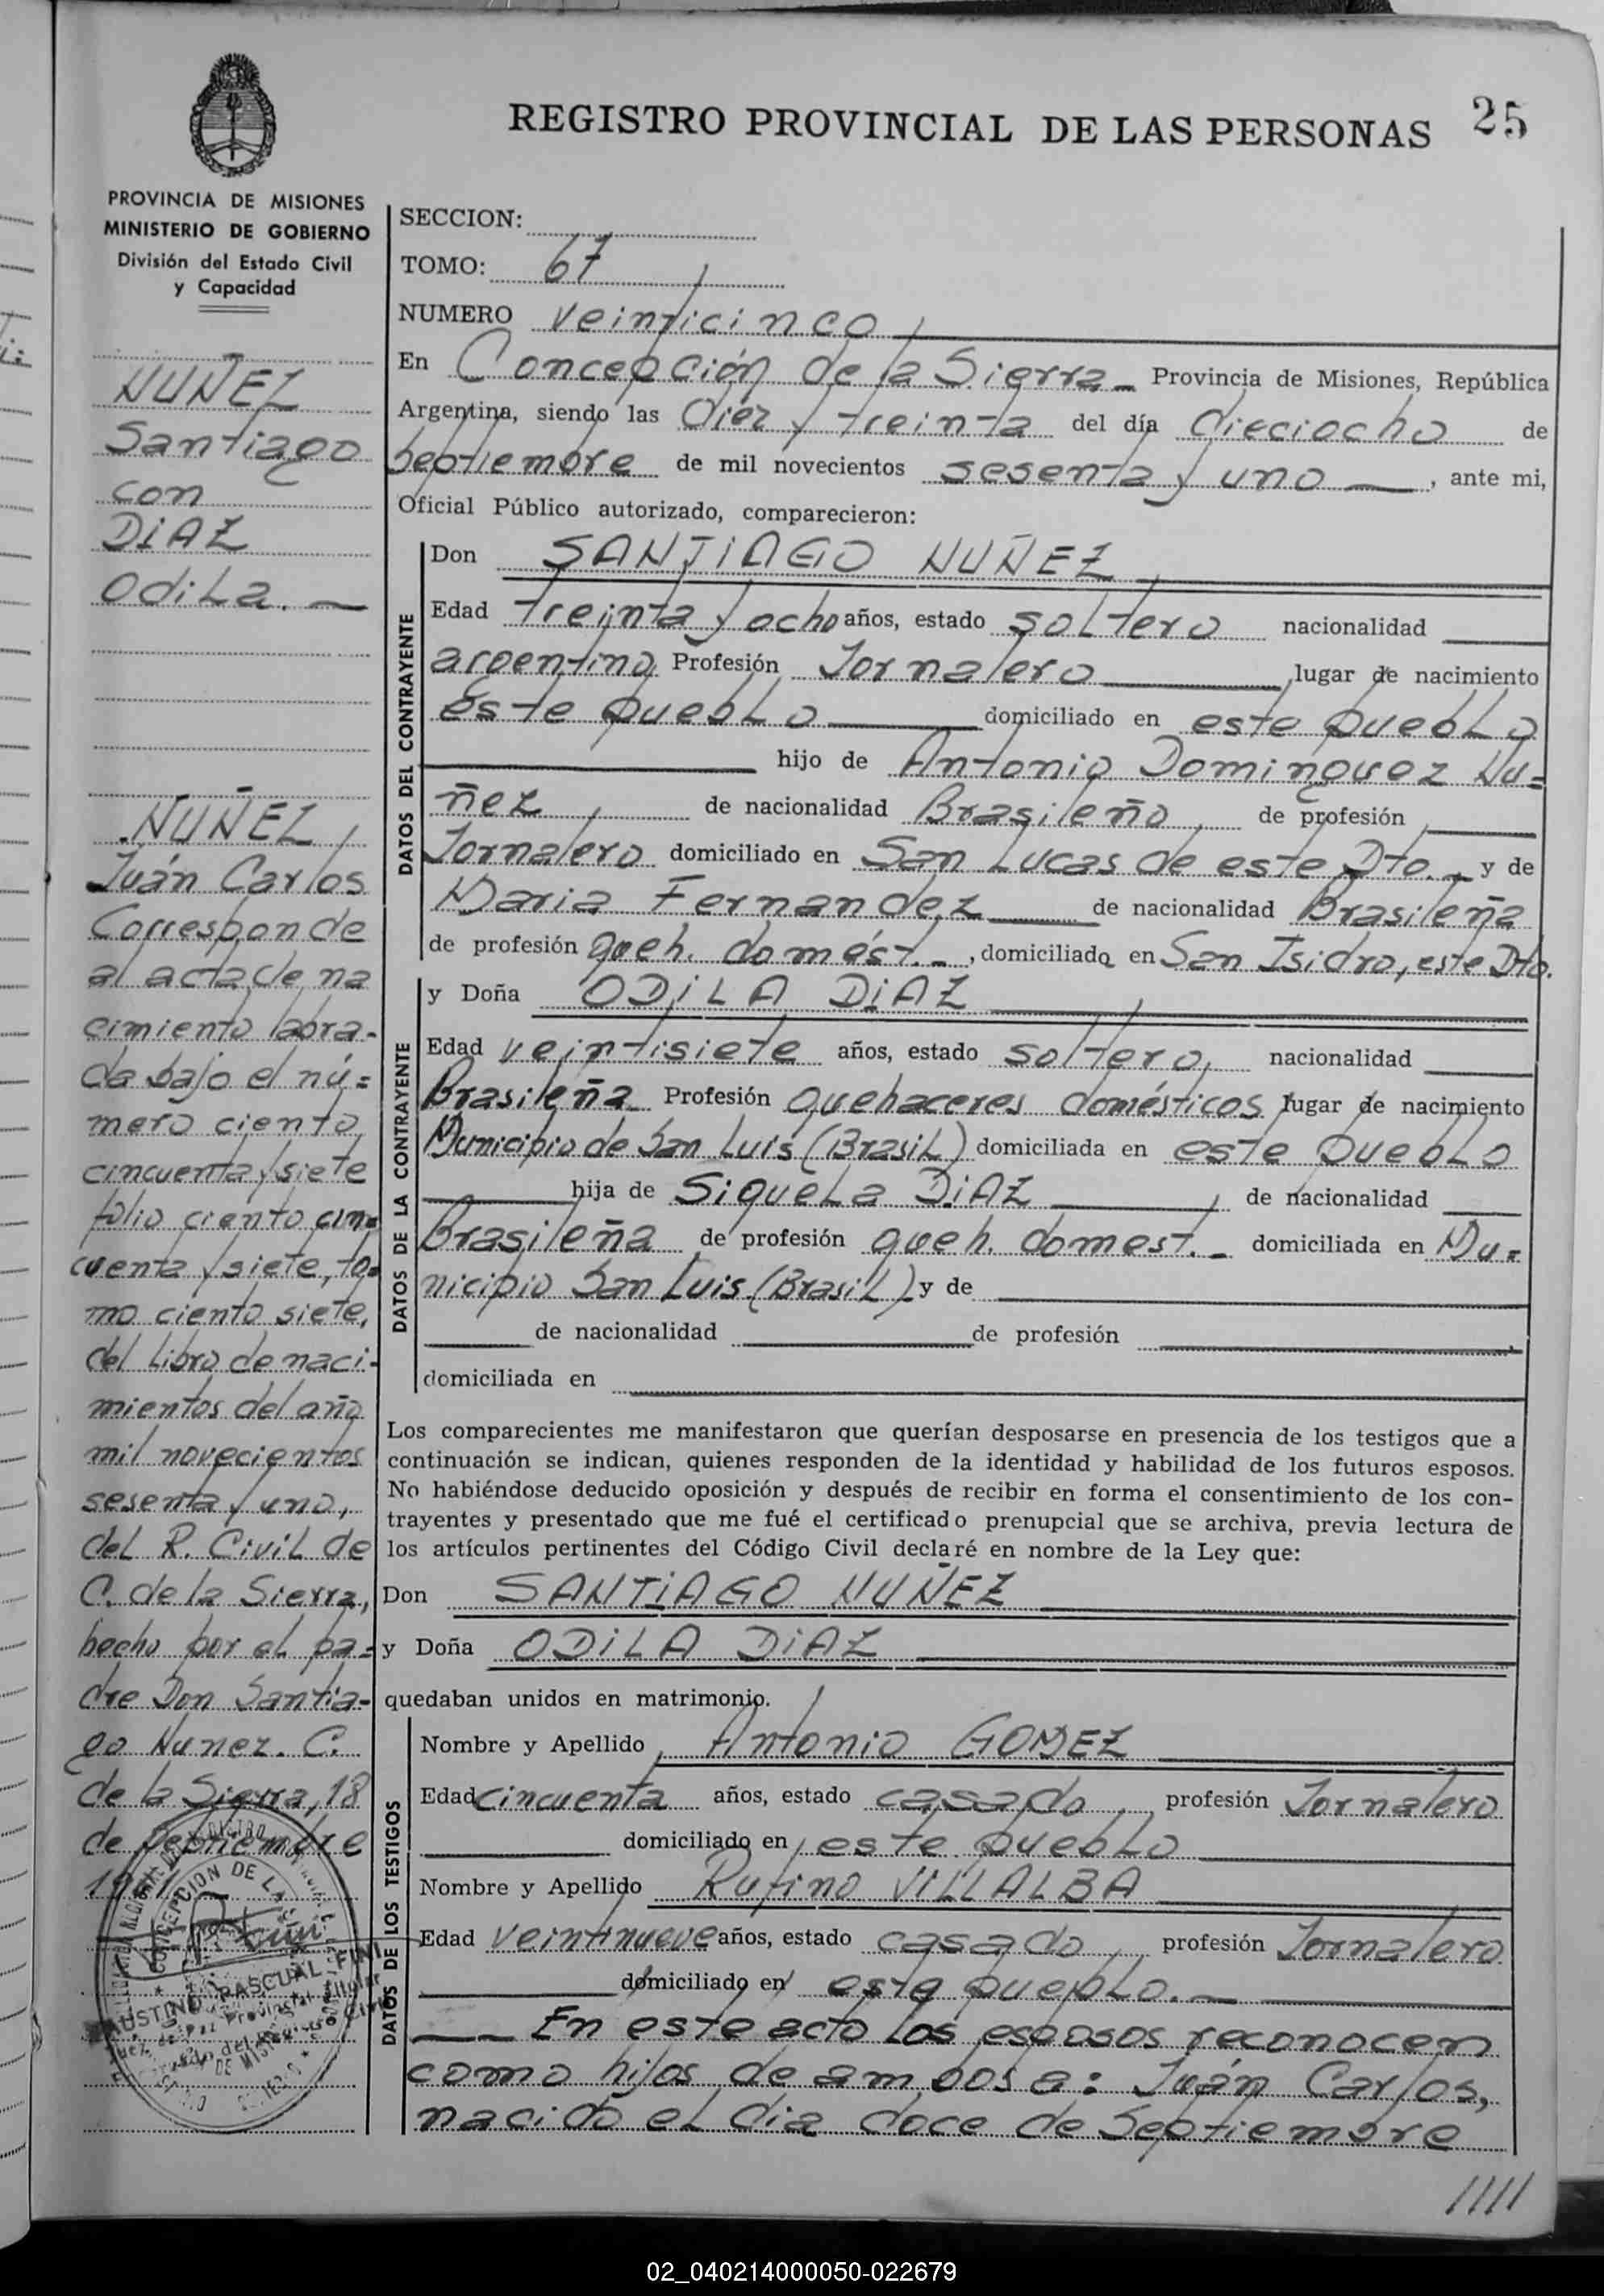 REGISTRO PROVINCIAL DE LAS PERSONAS
25
PROVINCIA DE MISIONES
MINISTERIO DE GOBIERNO
División del Estado Civil
y Capacidad
NUÑEZ
Santiago
con
DiAZ
Odila.
NUÑEZ,
Juán Carlos
Corresponde
al acta de na
cimiento labra-
da bajo el nú=
mero ciento
cincuenta y siete
folio ciento cin=
cuenta y siete, to=
mo ciento siete,
del libro de naci-
mientos del año
mil novecientos
sesenta y uno,
del R. Civil de
C. de la Sierra,
hecho por el pa=
dre Don Santia-
go Nunez. C.
de la Sierra, 18
de Septiembre
CONCEPCION DE LA
PASCUAL FINI
SECCION:
TOMO: 67
NUMERO veinticinco,
En Concepción de la Sierra Provincia de Misiones, República
Argentina, siendo las diez y treinta del día dieciocho de
septiembre de mil novecientos sesenta y uno , ante mi,
Oficial Público autorizado, comparecieron:
DATOS DEL CONTRAYENTE
Don SANTIAGO NUÑEZ,
Edad treinta y ocho años, estado soltero nacionalidad
argentino, Profesión Jornalero , lugar de nacimiento
este pueblo domiciliado en este pueblo
hijo de Antonio Dominguez Nu=
ñez, de nacionalidad Brasileño, de profesión
Jornalero domiciliado en San Lucas de este Dto. y de
Maria Fernandez de nacionalidad Brasileña
de profesión queh. domést. , domiciliada en San Isidro, este Dto.
DATOS DE LA CONTRAYENTE
y Doña ODiLA DiAZ
Edad veintisiete años, estado soltero, nacionalidad
Brasileña Profesión quehaceres domésticos lugar de nacimiento
Municipio de San Luis (Brasil) domiciliada en este pueblo
hija de Siquela DiAZ , de nacionalidad
Brasileña de profesión queh. domest. domiciliada en Mu=
nicipio San Luis (Brasil) y de
de nacionalidad de profesión
domiciliada en
Los comparecientes me manifestaron que querían desposarse en presencia de los testigos que a
continuación se indican, quienes responden de la identidad y habilidad de los futuros esposos.
No habiéndose deducido oposición y después de recibir en forma el consentimiento de los con-
trayentes y presentado que me fué el certificado prenupcial que se archiva, previa lectura de
los artículos pertinentes del Código Civil declaré en nombre de la Ley que:
Don SANTiAGO NUÑEZ
y Doña ODiLA DiAZ
quedaban unidos en matrimonio.
DATOS DE LOS TESTIGOS
Nombre y Apellido Antonio GOMEZ
Edad cincuenta años, estado casado, profesión Jornalero
domiciliado en este pueblo
Nombre y Apellido Rufino VILLALBA
Edad veintinueve años, estado casado, profesión Jornalero
domiciliado en este pueblo.
En este acto los esposos reconocen
como hijos de ambos a: Juán Carlos,
nacido el dia doce de Septiembre
/////
02_040214000050-022679